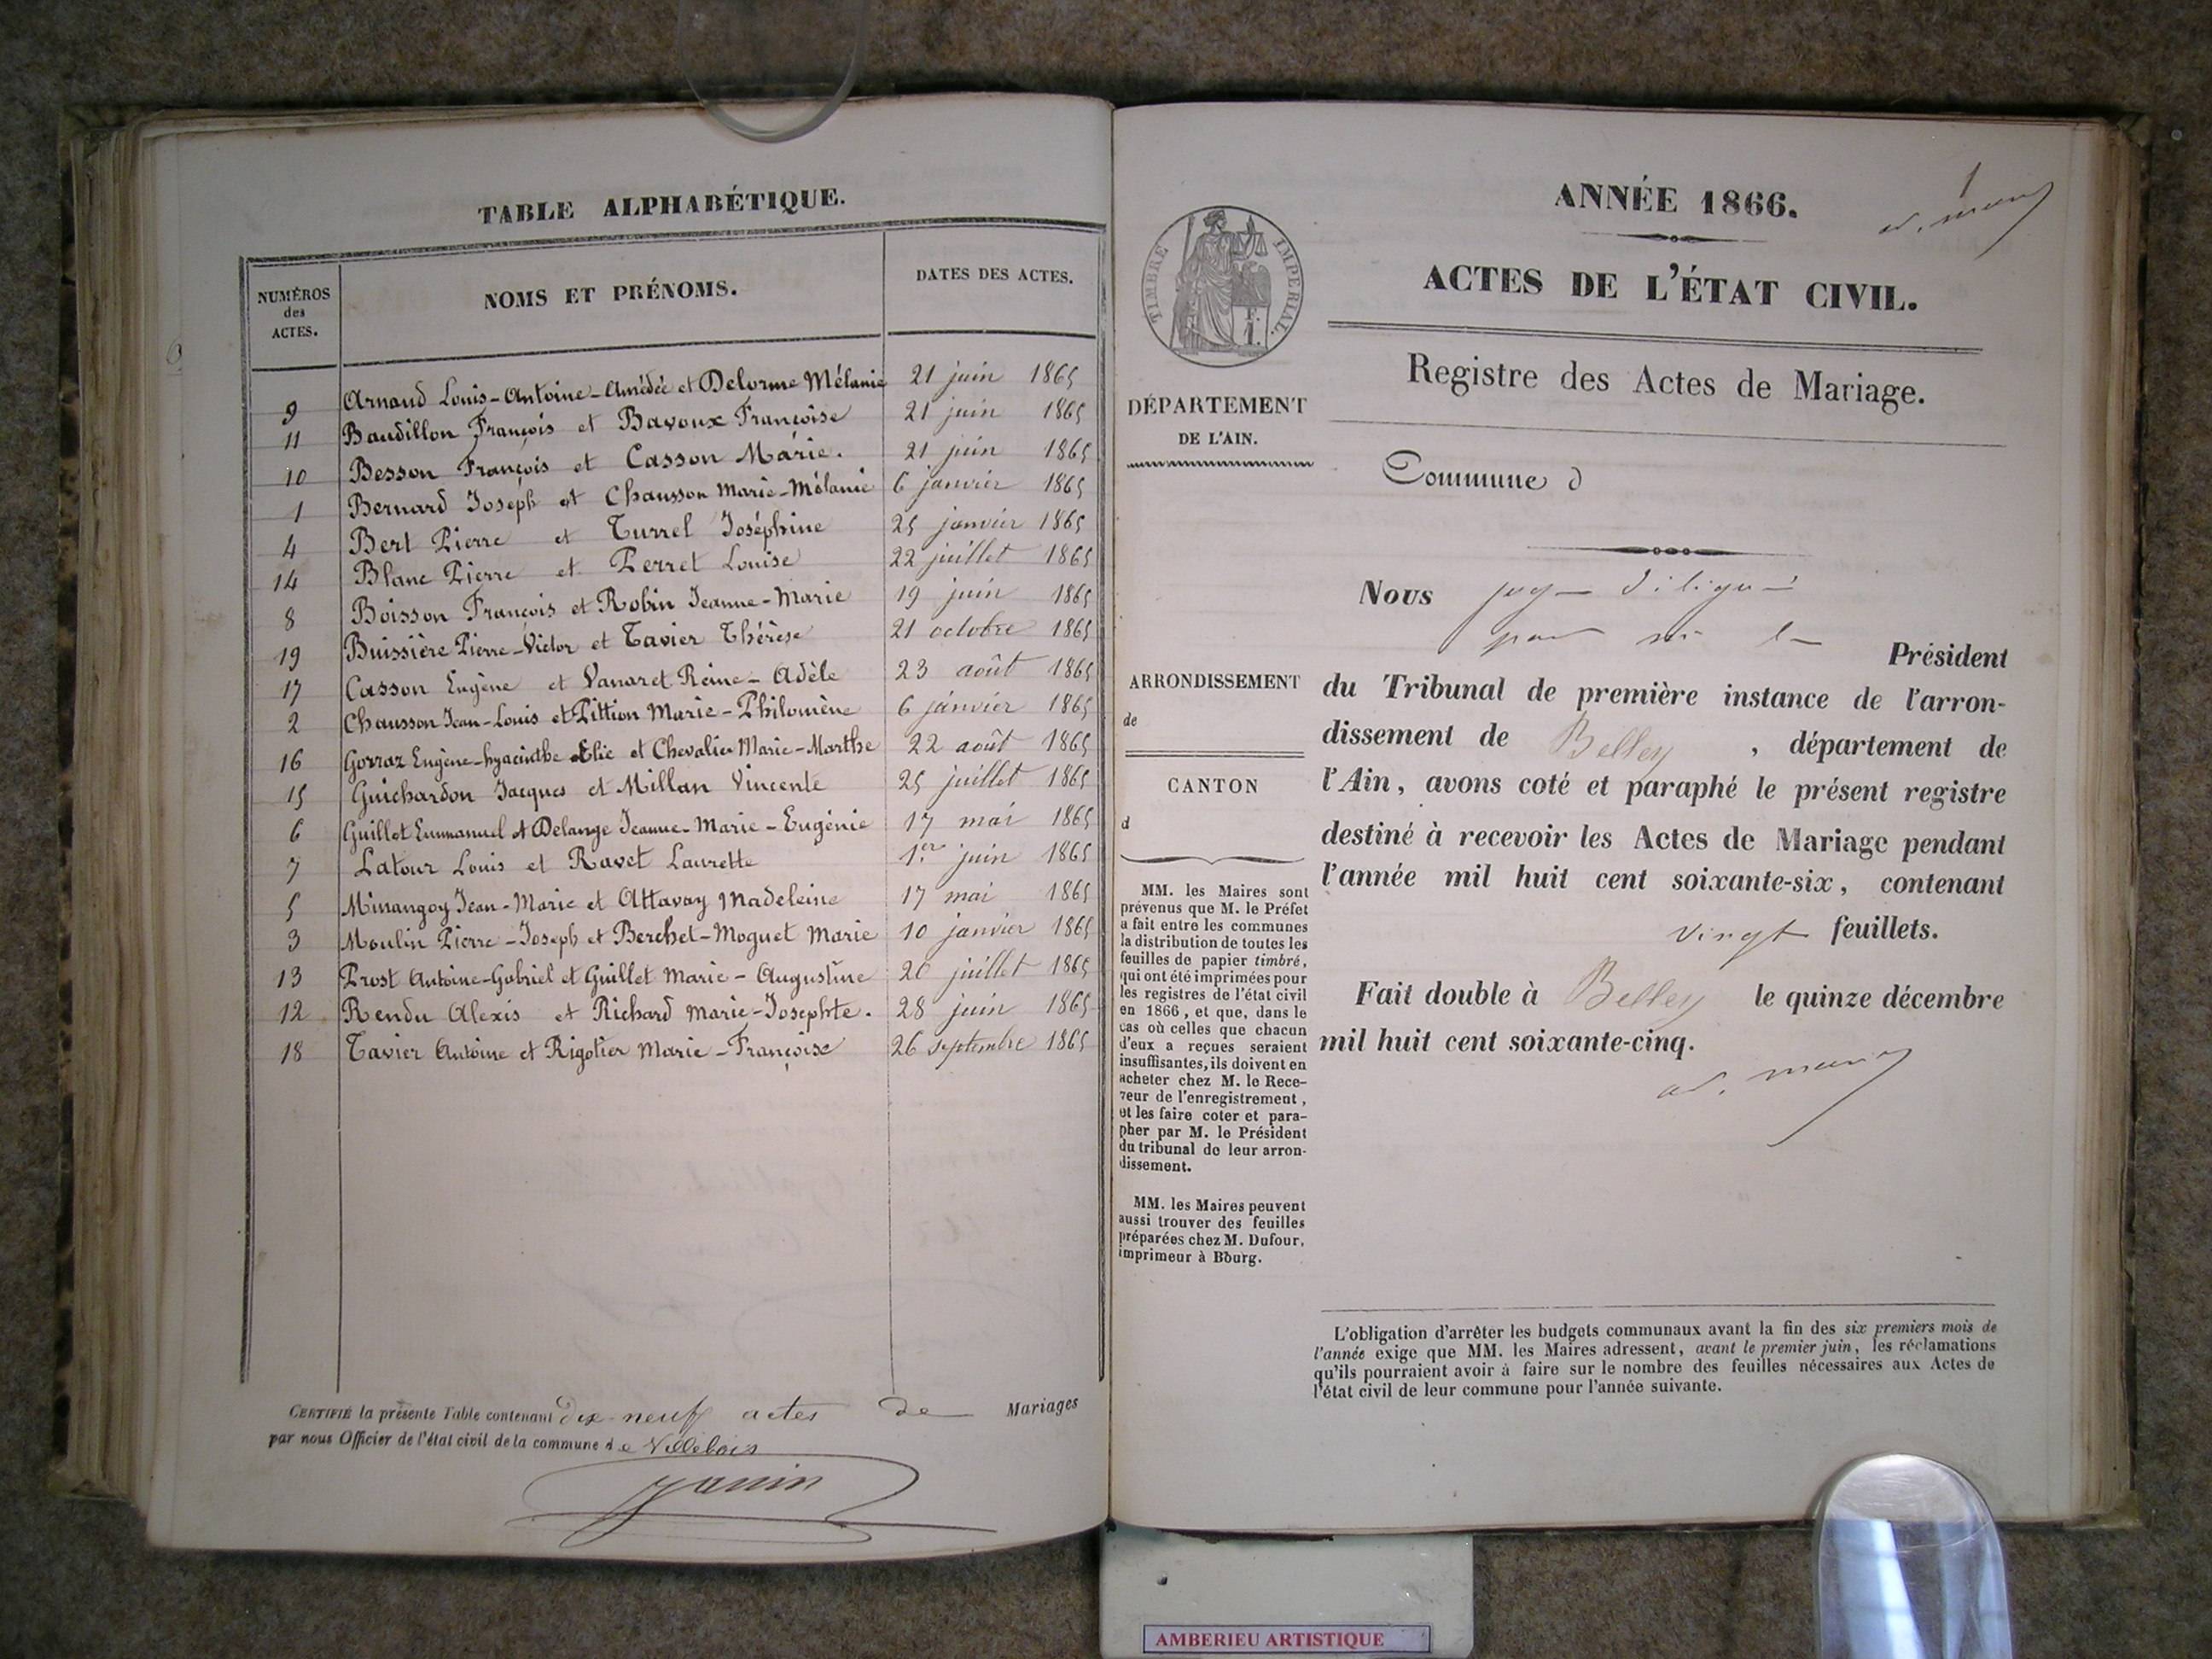 TABLE ALPHABÉTIQUE.
NUMÉROS des ACTES.
NOMS ET PRÉNOMS.
DATES DES ACTES.
9 Arnaud Louis-Antoine-Amédée et Delorme Mélanie 21 juin 1865
11 Baudillon François et Bavoux Françoise 21 juin 1865
10 Besson François et Casson Marie. 21 juin 1865
1 Bernard Joseph et Chausson Marie-Mélanie 6 janvier 1865
4 Bert Pierre et Turrel Joséphine 25 janvier 1865
14 Blanc Pierre et Perret Louise 22 juillet 1865
8 Boisson François et Robin Jeanne-Marie 19 juin 1865
19 Buissière Pierre-Victor et Tavier Thérèse 21 octobre 1865
17 Casson Eugène et Vanaret Reine-Adèle 23 août 1865
2 Chausson Jean-Louis et Pittion Marie-Philomène 6 janvier 1865
16 Gorraz Eugène-hyacinthe Elie et Chevalier Marie-Marthe 22 août 1865
15 Guichardon Jacques et Millan Vincente 25 juillet 1865
6 Guillot Emmanuel et Delange Jeanne-Marie-Eugénie 17 mai 1865
7 Latour Louis et Ravet Laurette 1er juin 1865
5 Minangoy Jean-Marie et Attavay Madeleine 17 mai 1865
3 Moulin Pierre-Joseph et Berchet-Moguet Marie 10 janvier 1865
13 Prost Antoine-Gabriel et Guillet Marie-Augustine 20 juillet 1865
12 Rendu Alexis et Richard Marie-Josephte. 28 juin 1865
18 Tavier Antoine et Rigotier Marie-Françoise 26 septembre 1865
CERTIFIÉ la présente Table contenant dix-neuf actes de Mariages
par nous Officier de l'état civil de la commune de Villebois
Janin
1
ANNÉE 1866.
ACTES DE L'ÉTAT CIVIL.
Registre des Actes de Mariage.
TIMBRE IMPÉRIAL.
DÉPARTEMENT
DE L'AIN.
ARRONDISSEMENT
de
CANTON
d
MM. les Maires sont
prévenus que M. le Préfet
a fait entre les communes
la distribution de toutes les
feuilles de papier timbré,
qui ont été imprimées pour
les registres de l'état civil
en 1866, et que, dans le
cas où celles que chacun
d'eux a reçues seraient
insuffisantes, ils doivent en
acheter chez M. le Rece-
veur de l'enregistrement,
et les faire coter et para-
pher par M. le Président
du tribunal de leur arron-
dissement.
MM. les Maires peuvent
aussi trouver des feuilles
préparées chez M. Dufour,
imprimeur à Bourg.
Commune d
Nous juge délégué
par M. le Président
du Tribunal de première instance de l'arron-
dissement de Belley, département de
l'Ain, avons coté et paraphé le présent registre
destiné à recevoir les Actes de Mariage pendant
l'année mil huit cent soixante-six, contenant
vingt feuillets.
Fait double à Belley le quinze décembre
mil huit cent soixante-cinq.
L'obligation d'arrêter les budgets communaux avant la fin des six premiers mois de
l'année exige que MM. les Maires adressent, avant le premier juin, les réclamations
qu'ils pourraient avoir à faire sur le nombre des feuilles nécessaires aux Actes de
l'état civil de leur commune pour l'année suivante.
AMBERIEU ARTISTIQUE